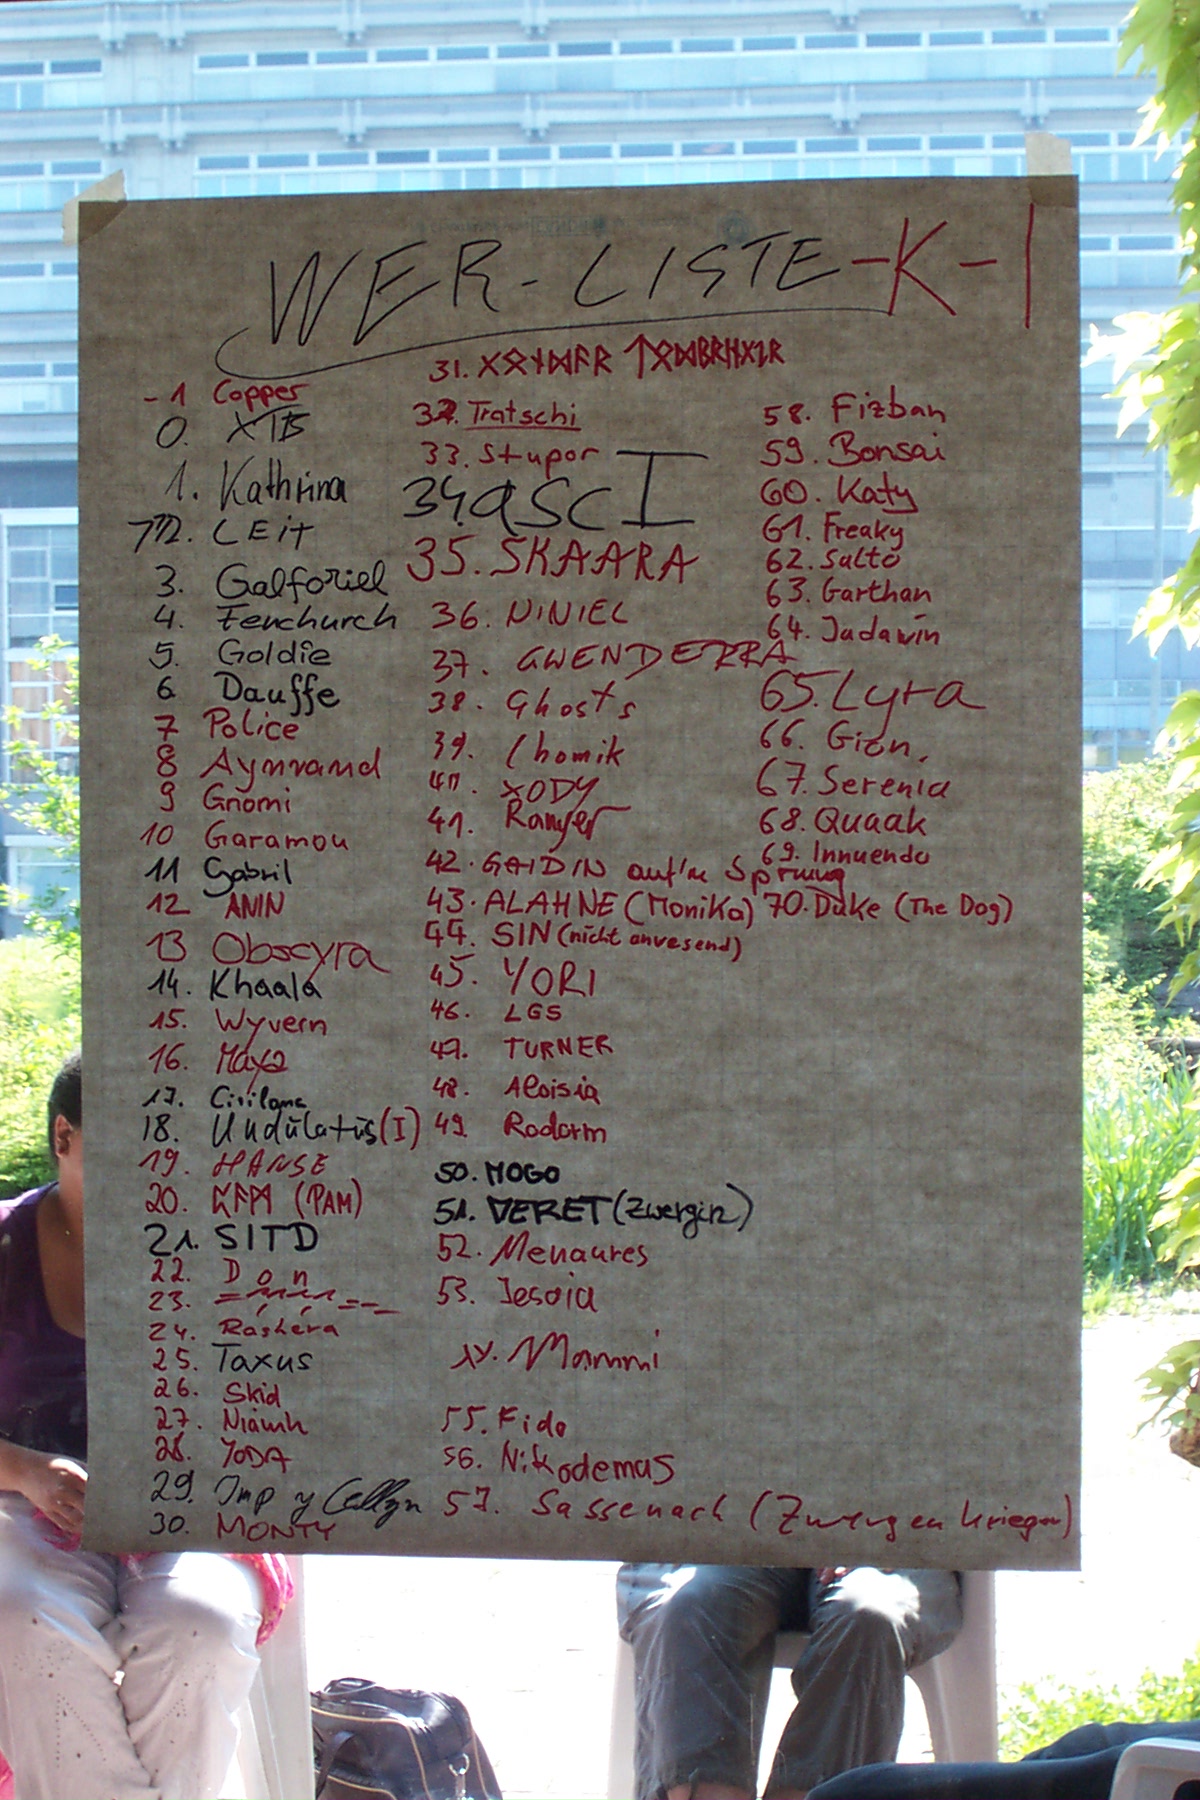 WER-LISTE-K-I
-1 Copper
0. XTB
1. Kathrina
2. LEiT
3. Galforiel
4. Fenchurch
5. Goldie
6 Dauffe
7 Police
8 Aynrand
9 Gnomi
10 Garamou
11 Gabril
12 ANIN
13 Obscyra
14. Khaala
15. Wyvern
16. Maya
17. Civilana
18. Undūlatūs (I)
19. HANSE
20. (PAM)
21. SITD
22. Don
23.
24. Rashéra
25. Taxus
26. Skid
27. Niamh
28. YODA
29. Imp y Celyn
30. MONTY
31. ᚷᛟᚾᛞᚨᚱ ᛏᛟᛞᛒᚱᛖᚷᛖᚱ
32. Tratschi
33. Stupor
34. ascI
35. SKAARA
36. NiNiEL
37. GWENDERRA
38. Ghosts
39. Chomik
40. XODY
41. Ranger
42. GAIDIN auf'm Sprung
43. ALAHNE (Monika)
44. SIN (nicht anwesend)
45. YORI
46. LGS
47. TURNER
48. Aloisia
49. Rodorm
50. MOGO
51. VERET (Zwergin)
52. Menaures
53. Jesaia
Mammi
55. Fido
56. Nikodemas
57. Sassenach (Zwergenkrieger)
58. Fizban
59. Bonsai
60. Katy
61. Freaky
62. Salto
63. Garthan
64. Jadawin
65. Lyra
66. Gion
67. Serenia
68. Quaak
69. Innuendo
70. Duke (The Dog)